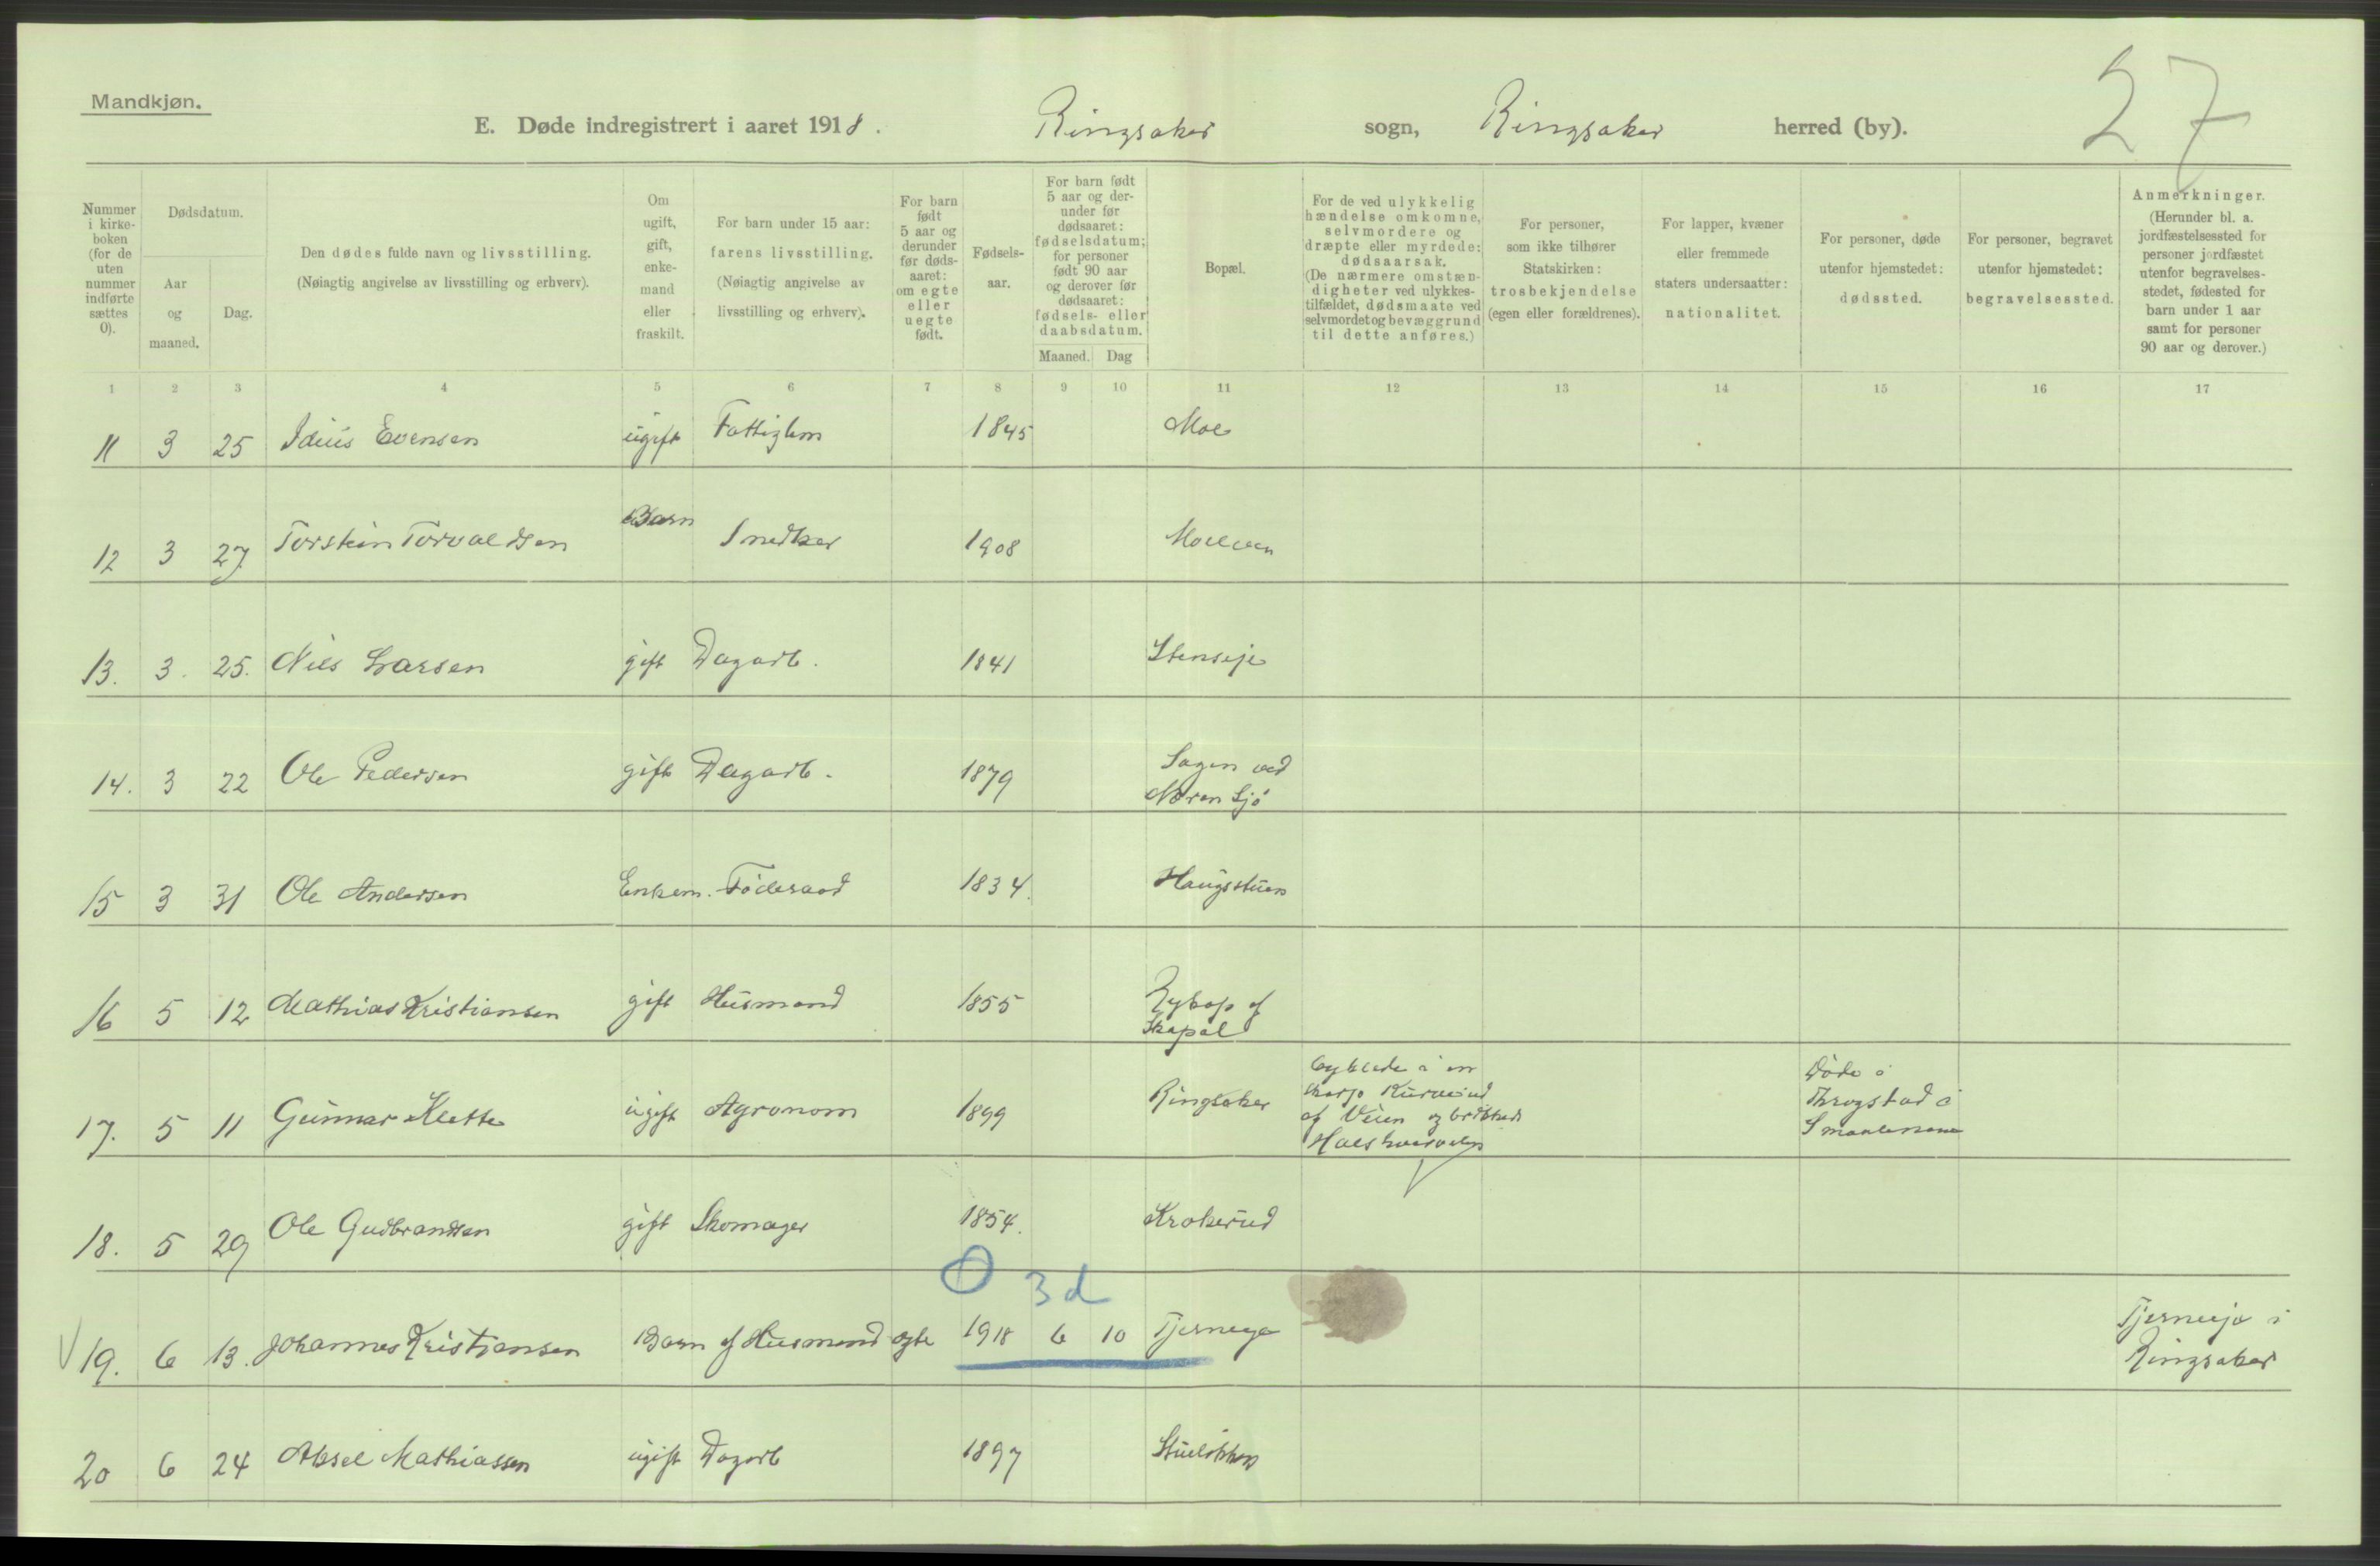 Mandkjøn.
E. Døde indregistrert i aaret 1918. Ringsaker sogn, Ringsaker herred (by).
27
Nummer i kirkeboken (for de uten nummer indførte sættes 0).
Dødsdatum.
Aar og maaned.
Dag.
Den dødes fulde navn og livsstilling.
(Nøiagtig angivelse av livsstilling og erhverv).
Om ugift, gift, enkemand eller fraskilt.
For barn under 15 aar: farens livsstilling.
(Nøiagtig angivelse av livsstilling og erhverv).
For barn født 5 aar og derunder før dødsaaret: om egte eller uegte født.
Fødselsaar.
For barn født 5 aar og derunder før dødsaaret: fødselsdatum; for personer født 90 aar og derover før dødsaaret: fødsels- eller daabsdatum.
Maaned. Dag
Bopæl.
For de ved ulykkelig hændelse omkomne, selvmordere og dræpte eller myrdede: dødsaarsak.
(De nærmere omstændigheter ved ulykkestilfældet, dødsmaate ved selvmordet og bevæggrund til dette anføres.)
For personer, som ikke tilhører Statskirken: trosbekjendelse (egen eller forældrenes).
For lapper, kvæner eller fremmede staters undersaatter: nationalitet.
For personer, døde utenfor hjemstedet: dødssted.
For personer, begravet utenfor hjemstedet: begravelsessted.
Anmerkninger.
(Herunder bl. a. jordfæstelsessted for personer jordfæstet utenfor begravelsesstedet, fødested for barn under 1 aar samt for personer 90 aar og derover.)
1 2 3 4 5 6 7 8 9 10 11 12 13 14 15 16 17
11 3 25 Idius Evensen ugift Fattiglem 1845 Moe
12 3 27 Torstein Torvaldsen Barn Snedker 1908 Moelven
13. 3. 25. Nils Larsen gift Dagarb. 1841 Stenseje
14. 3 22 Ole Pedersen gift Dagarb. 1879 Sagen ved
Næren Sjø
15 3 31 Ole Andersen Enkem. Föderaad 1834. Haugsstuen
16 5 12 Mathias Kristiansen gift Husmand 1855 af
Skapal
17. 5 11 Gunnar Klette ugift Agronom 1899 Ringsaker Cyklede i en
skarp Kurve ud
af Veien og brækkede
Halshvirvelen
Døde i
Throgstad i
Smaalenene
18. 5 29 Ole Gudbrandsen gift Skomager 1854. Krokerud
O 3 d
19. 6 13. Johannes Kristiansen Barn af Husmand egte 1918 6 10 Tjerneje Tjerneje i
Ringsaker
20 6 24 Aksel Mathiassen ugift Dagarb 1897